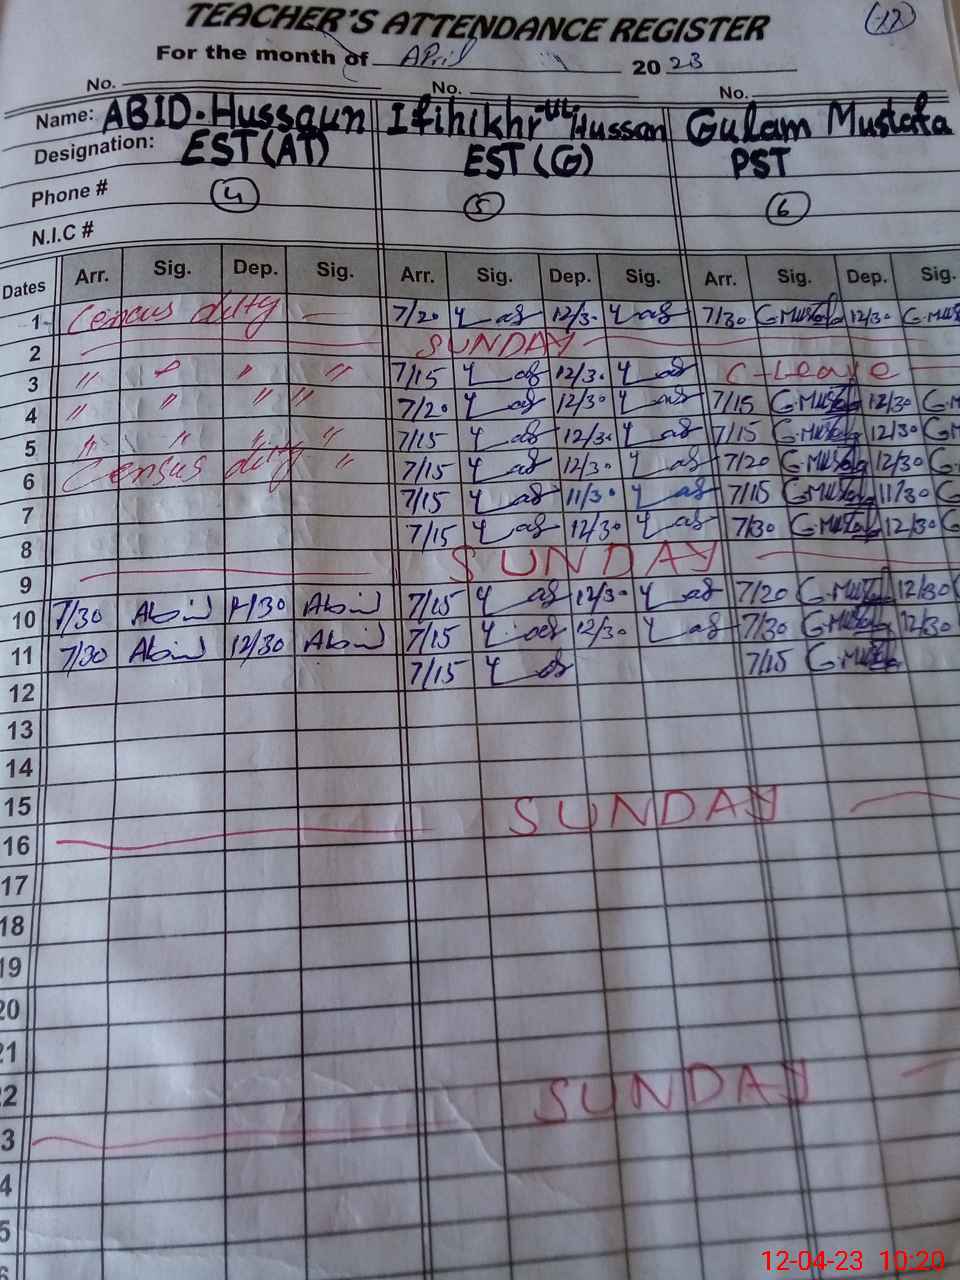 TEACHER'S ATTENDANCE REGISTER (12)
For the month of April 2023
No. No. No.
Name: ABID.Hussaun Ifihikhr ul Hussan Gulam Mustafa
Designation: EST(AT) EST(G) PST
Phone # 4 5 6
N.I.C #
Dates Arr. Sig. Dep. Sig. Arr. Sig. Dep. Sig. Arr. Sig. Dep. Sig.
1 Census duty — 7/20 12/30 7/30 G.Mustafa 12/30 G.Mus
2 SUNDAY
3 " " " " 7/15 12/30 C-Leave
4 " " " " 7/20 12/30 7/15 G.Mustafa 12/30 G.M
5 " " " " 7/15 12/30 7/15 G.Mustafa 12/30 G.M
6 Census duty " 7/15 12/30 7/20 G.Mustafa 12/30 G.
7 7/15 11/30 7/15 G.Mustafa 11/30 G
8 7/15 12/30 7/30 G.Mustafa 12/30 G
9 SUNDAY
10 7/30 Abid 12/30 Abid 7/15 12/30 7/20 G.Mustafa 12/30
11 7/30 Abid 12/30 Abid 7/15 12/30 7/30 G.Mustafa 12/30
12 7/15 7/15 G.Mustafa
13
14
15
16 SUNDAY
17
18
19
20
21
22
3 SUNDAY
4
5
6
12-04-23 10:20